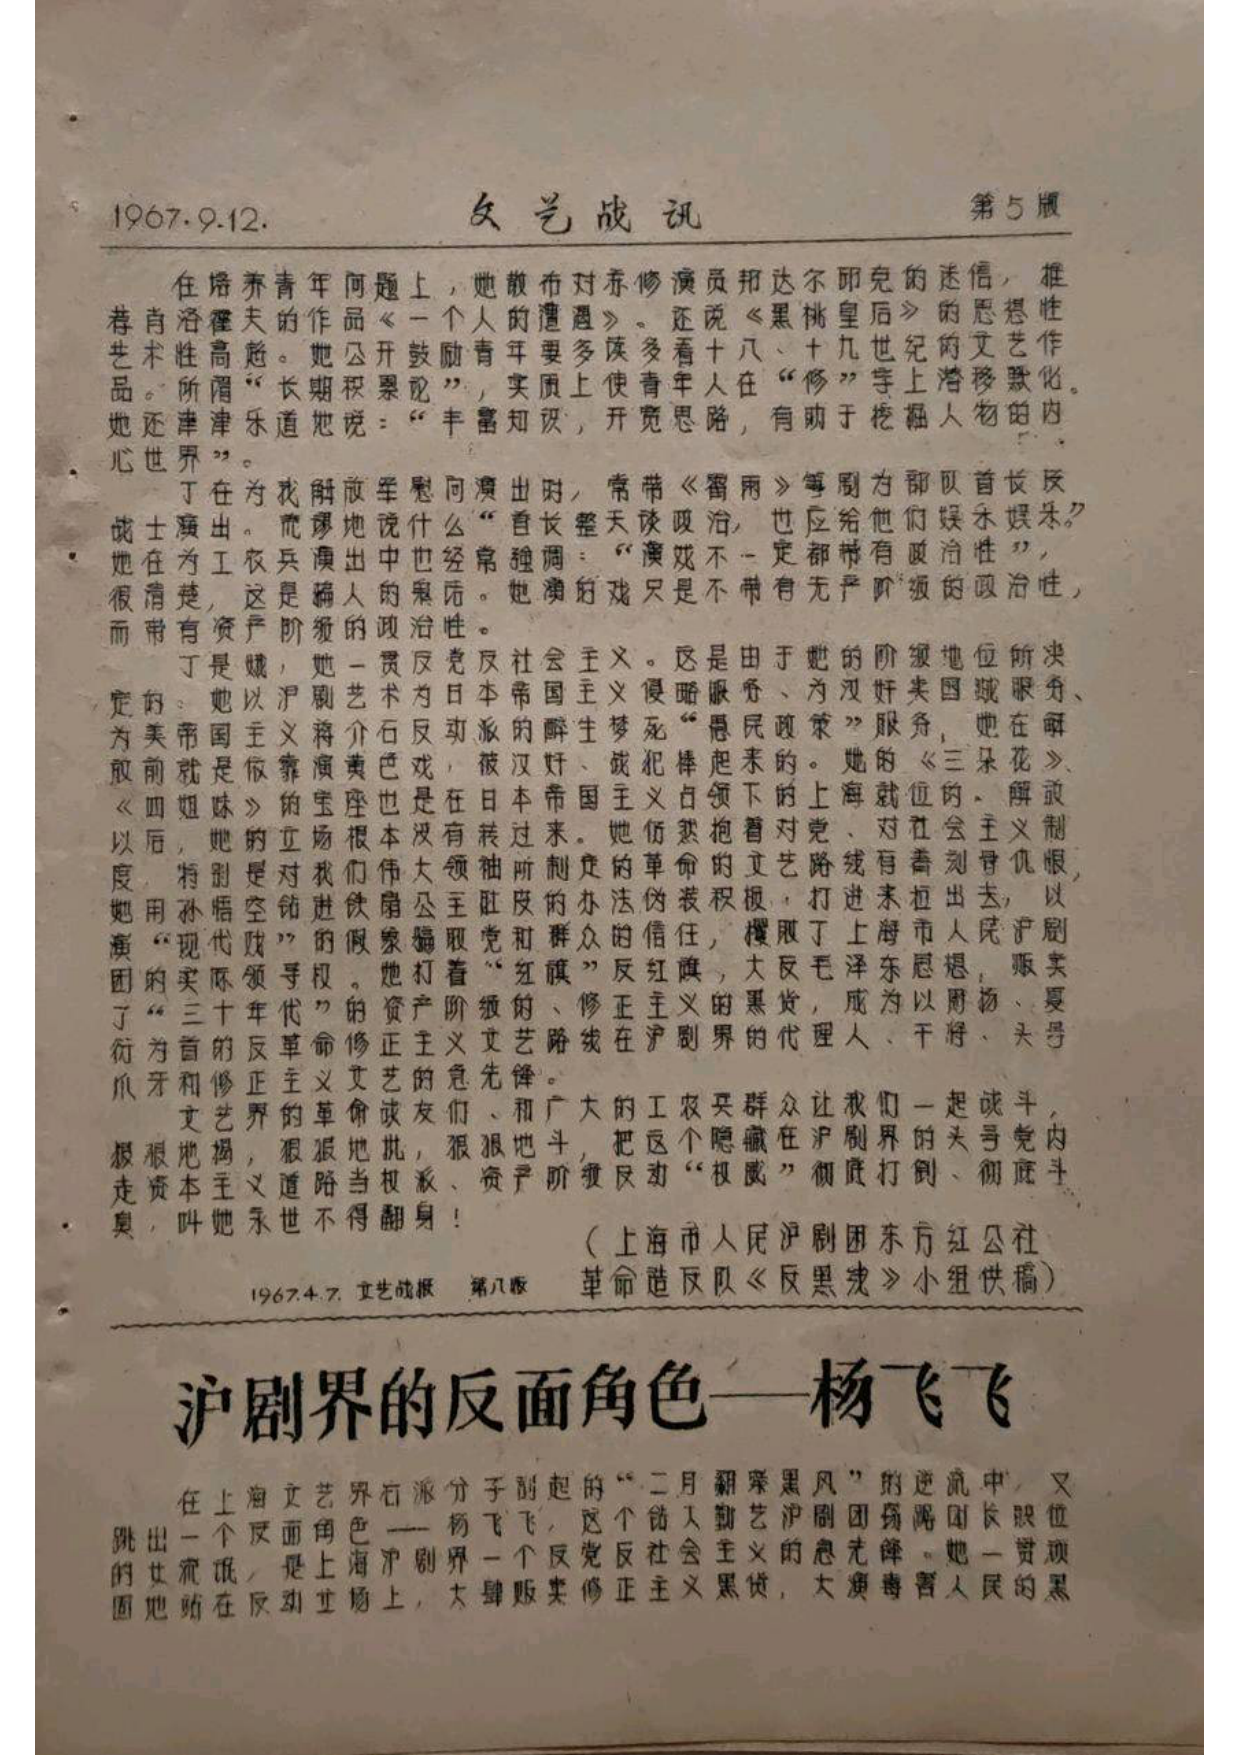 1967.9.12.
文艺战讯
第5版
在培养青年问题上，她散布对苏修演员邦达尔邱克的迷信，推
荐肖洛霍夫的作品《一个人的遭遇》。还说《黑桃皇后》的思想性
艺术性高超。她公开鼓励青年要多读多看十八、十九世纪的文艺作
品。所谓“长期积累论”，实质上使青年人在“修”字上潜移默化。
她还津津乐道地说：“丰富知识，开宽思路，有助于挖掘人物的内
心世界”。
丁在为我解放军慰问演出时，常带《雷雨》等剧为部队首长及
战士演出。荒谬地说什么“首长整天谈政治，也应给他们娱乐娱乐。”
她在为工农兵演出中也经常强调：“演戏不一定都带有政治性”，
很清楚，这是骗人的鬼话。她演的戏只是不带有无产阶级的政治性，
而带有资产阶级的政治性。
丁是娥，她一贯反党反社会主义。这是由于她的阶级地位所决
定的。她以沪剧艺术为日本帝国主义侵略服务、为汉奸卖国贼服务、
为美帝国主义蒋介石反动派的醉生梦死“愚民政策”服务，她在解
放前就是依靠演黄色戏，被汉奸、战犯捧起来的。她的《三朵花》、
《四姐妹》的宝座也是在日本帝国主义占领下的上海就位的。解放
以后，她的立场根本没有转过来。她仍然抱着对党、对社会主义制
度，特别是对我们伟大领袖所制定的革命的文艺路线有着刻骨仇恨，
她用孙悟空钻进铁扇公主肚皮的办法伪装积极，打进来拉出去，以
演“现代戏”的假象骗取党和群众的信任，攫取了上海市人民沪剧
团的实际领导权。她打着“红旗”反红旗，大反毛泽东思想，贩卖
了“三十年代”的资产阶级的、修正主义的黑货，成为以周扬、夏
衍为首的反革命修正主义文艺路线在沪剧界的代理人、干将、头号
爪牙和修正主义文艺的急先锋。
文艺界的革命战友们、和广大的工农兵群众让我们一起战斗，
狠狠地揭，狠狠地批，狠狠地斗，把这个隐藏在沪剧界的头号党内
走资本主义道路当权派、资产阶级反动“权威”彻底打倒、彻底斗
臭，叫她永世不得翻身！
（上海市人民沪剧团东方红公社
革命造反队《反黑线》小组供稿）
1967.4.7. 文艺战报 第八版
沪剧界的反面角色——杨飞飞
在上海文艺界右派分子刮起的“二月翻案黑风”的逆流中，又
跳出一个反面角色——杨飞飞，这个钻入勤艺沪剧团窃踞团长职位
的女流氓，是上海沪剧界一个反党反社会主义的急先锋。她一贯顽
固地站在反动立场上，大肆贩卖修正主义黑货，大演毒害人民的黑